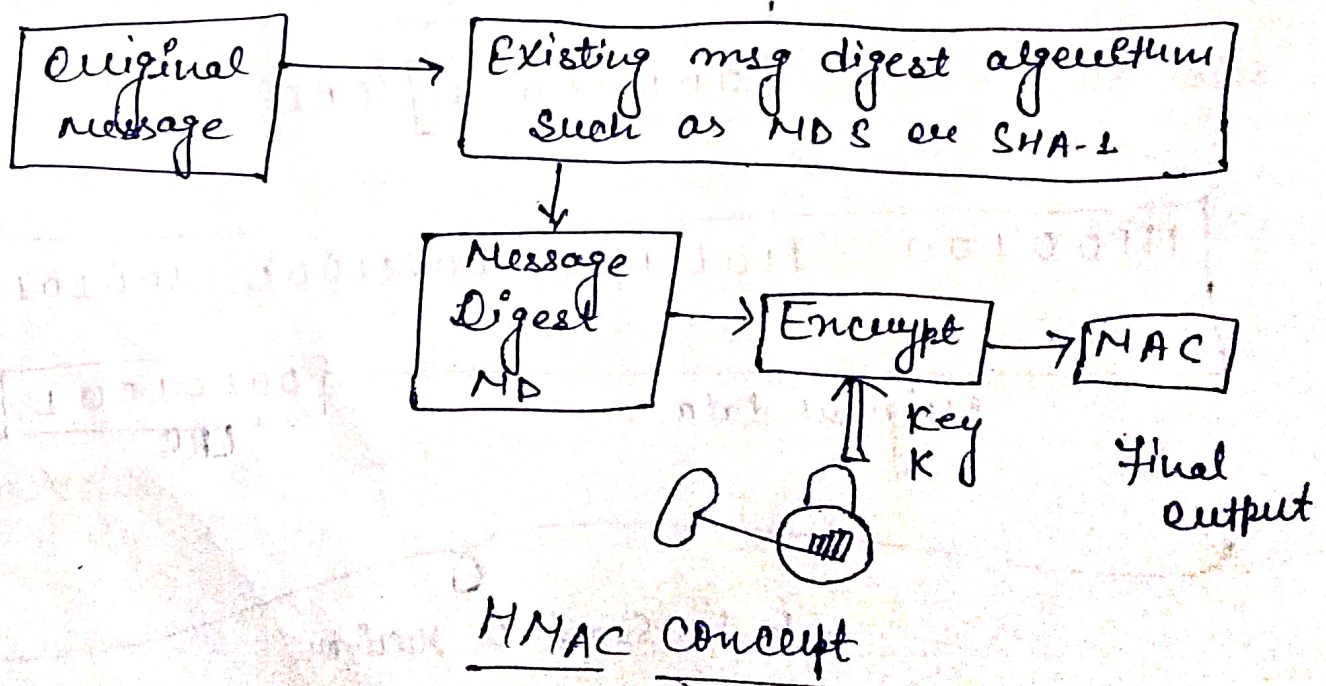 Original
message
Existing msg digest algorithm
such as MD5 or SHA-1
Message
Digest
MD
Encrypt
MAC
Key
K
Final
output
HMAC concept